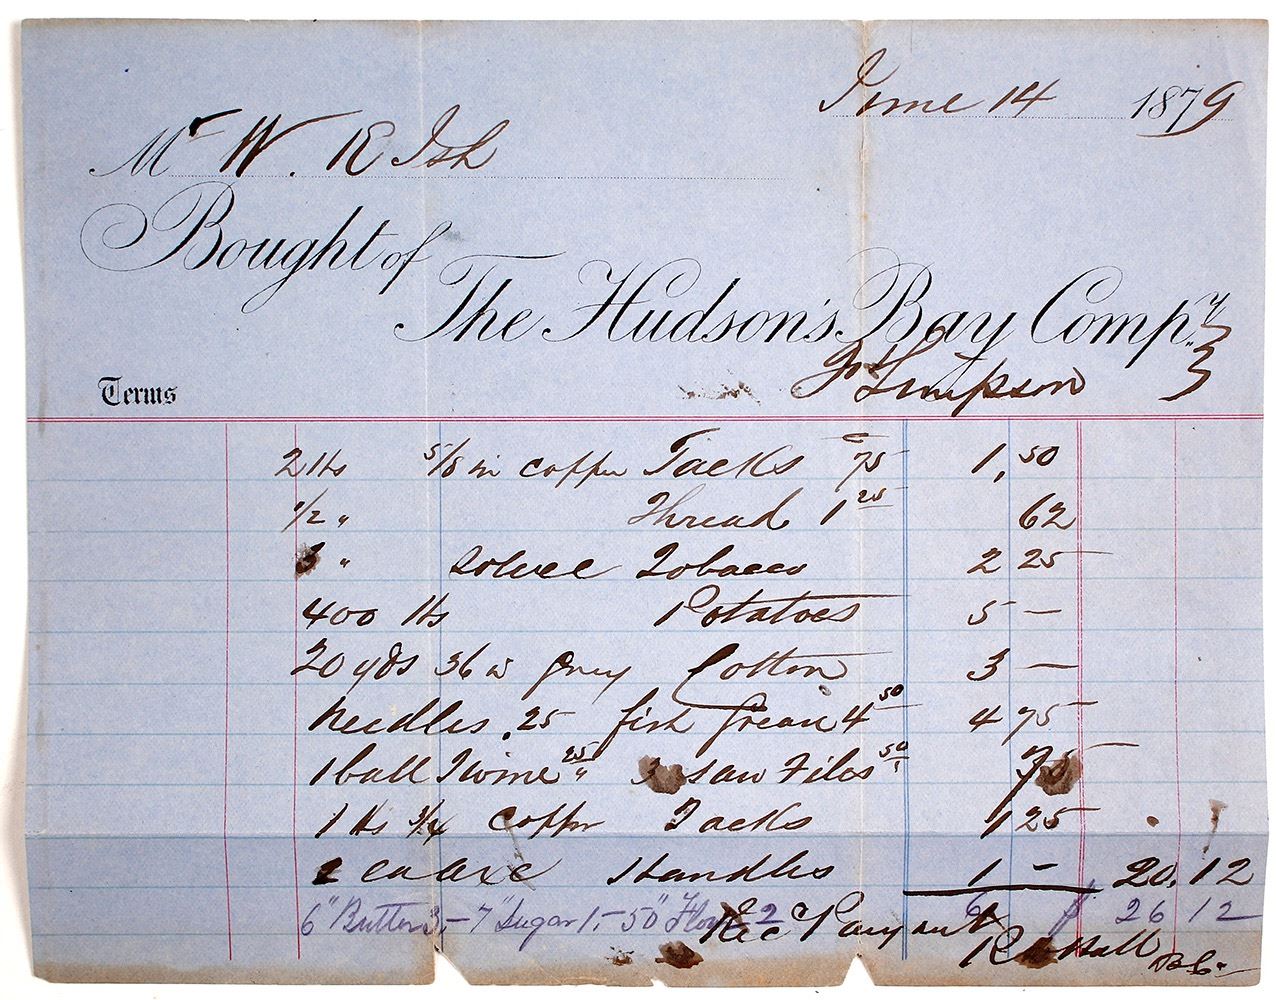 June 14 1879
Mr W. R Ish
Bought of
The Hudson's Bay Compy
Ft Simpson
Terms
2 lbs 5/8 in copper Tacks 75 1.50
1/2 " Thread 1 25 62
3 " solace Tobacco 2 25
400 lbs Potatoes 5 —
20 yds 36 in grey Cotton 3 —
Needles .25 fish Grease 4 50 4 75
1 ball Twine 25 " 3 saw Files 50 75
1 lb 3/4 copper Tacks 1 25
2 ea axe Handles 1 - 20.12
6" Butter 3.— 7" Sugar 1.- 50" Flour 2 6 26 12
Rec Payment
R H Hall